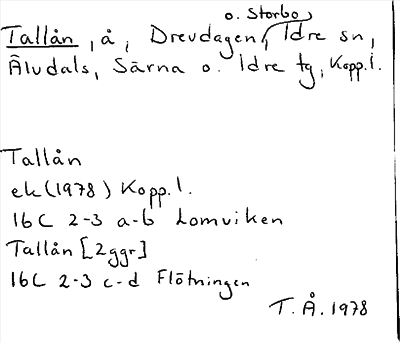 o. Storbo
Tallån, å, Drevdagen, Idre sn,
Älvdals, Särna o. Idre tg, Kopp. l.
Tallån
ek (1978) Kopp. l.
16C 2-3 a-b Lomviken
Tallån [2ggr]
16C 2-3 c-d Flötningen
T. Å. 1978